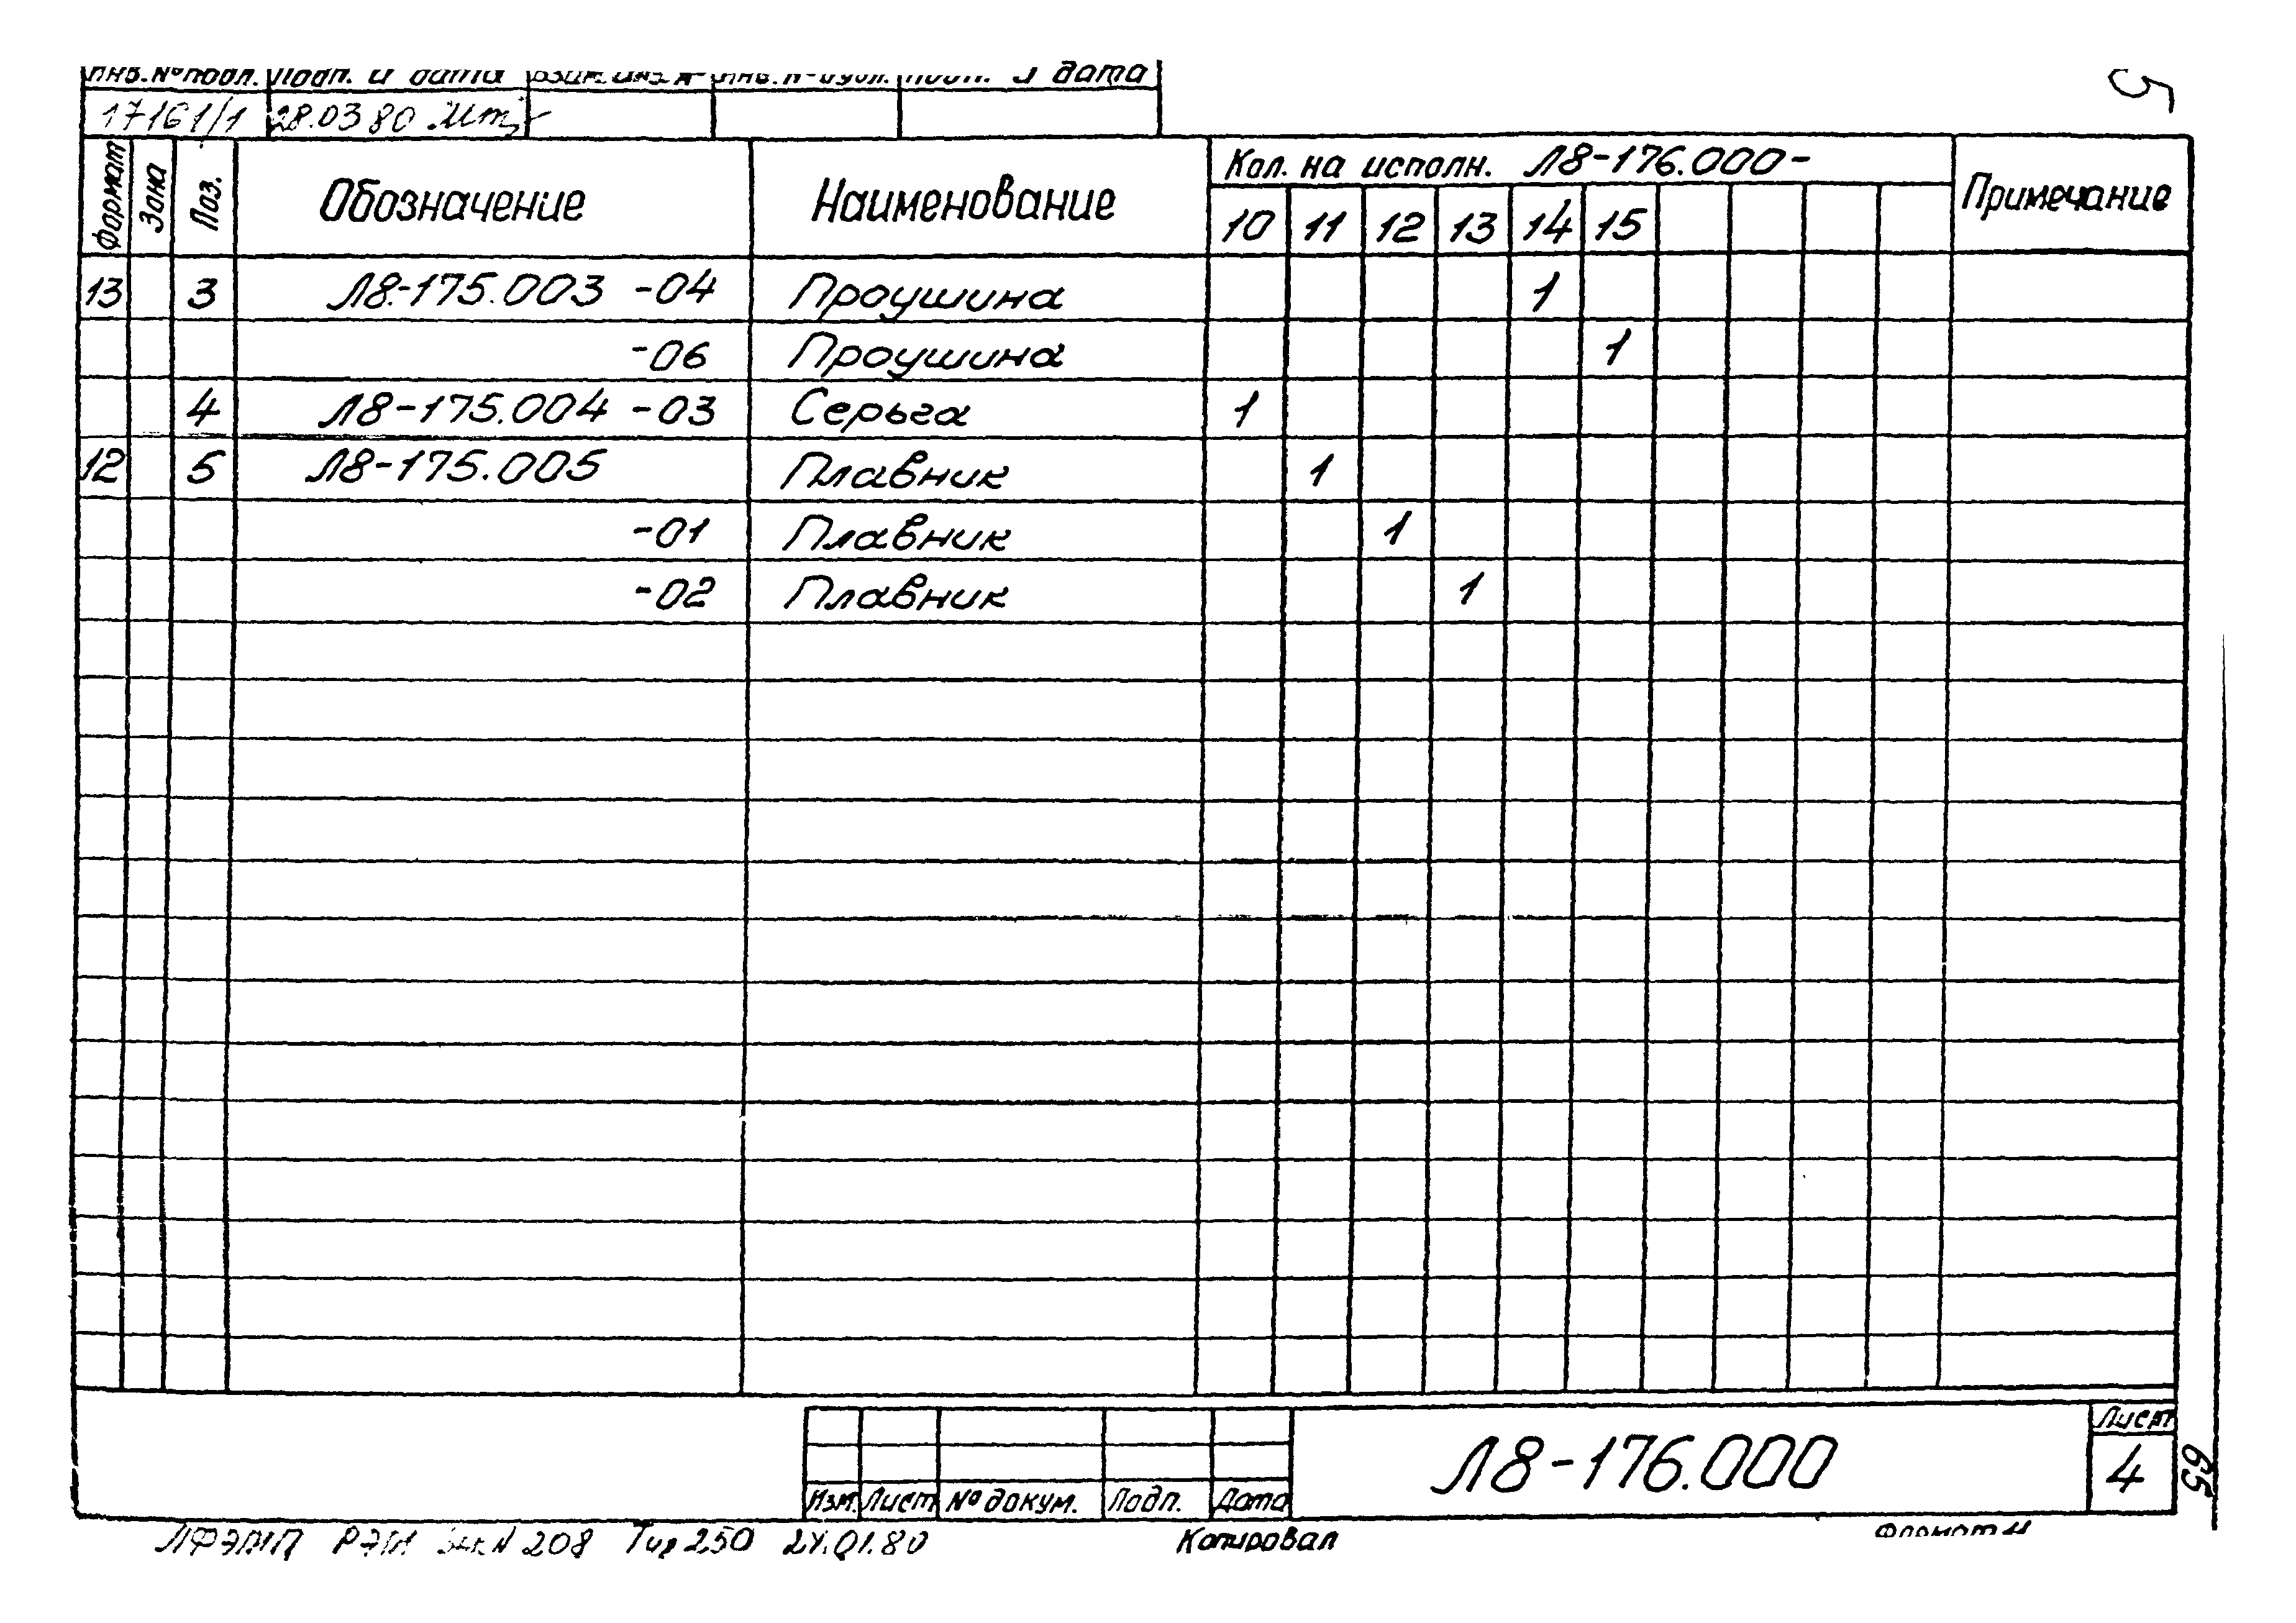 Инв.№ подл. Подп. и дата Взам. инв. № Инв. № дубл. Подп. и дата
17161/1 28.03 80
5
Формат Зона Поз. Обозначение Наименование Кол. на исполн. Л8-176.000- Примечание
10 11 12 13 14 15
13 3 Л8-175.003 -04 Проушина 1
-06 Проушина 1
4 Л8-175.004 -03 Серьга 1
12 5 Л8-175.005 Плавник 1
-01 Плавник 1
-02 Плавник 1
Изм. Лист № докум. Подп. Дата
Л8-176.000
Лист
4
65
208 Тир 250 .01.80
Копировал
Формат 11